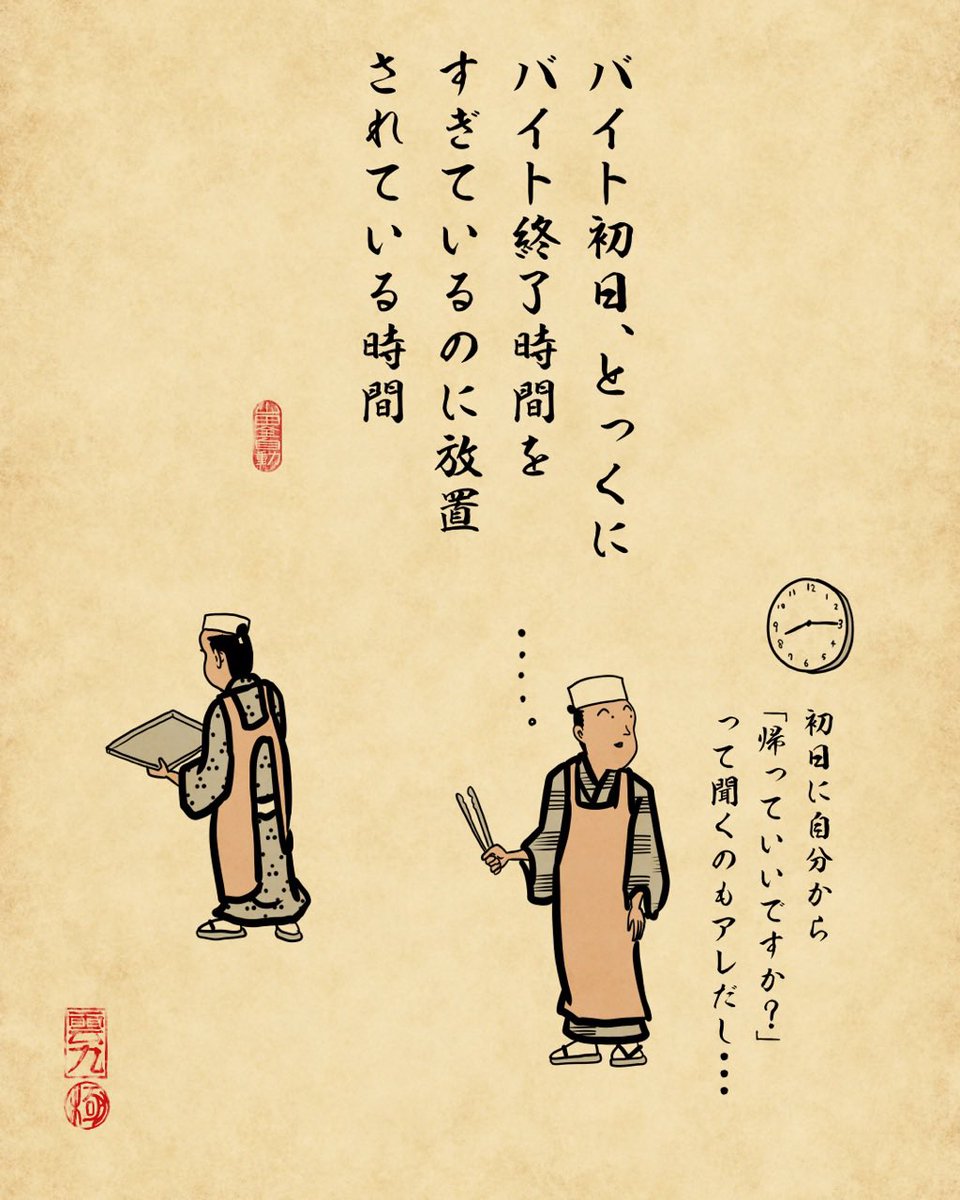 バイト初日、とっくに
バイト終了時間を
すぎているのに放置
されている時間
12
1
2
3
4
5
6
7
8
9
10
11
初日に自分から
「帰っていいですか?」
って聞くのもアレだし・・・
・・・・。